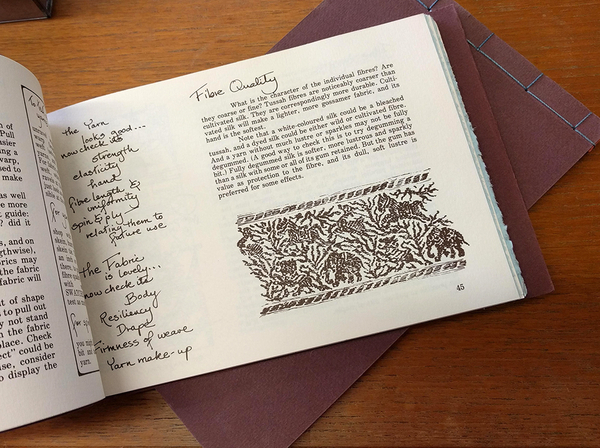 n of
Pull
easier
ng a
warp,
sed to
make
as well
e more
guide:
? did it
s, and on
gthwise),
rics may
the fabric
fabric will
t of shape
s to pull out
y not stand
n the fabric
place. Check
ect" could be
use, consider
o display the
yarn.
the Yarn
looks good...
now check its
strength
elasticity
hand
fibre length &
uniformity
spin & ply
relating them to
future use
the Fabric
is lovely...
now check its
Body
Resiliency
Drape
Firmness of weave
Yarn make-up
Fibre Quality
What is the character of the individual fibres? Are
they coarse or fine? Tussah fibres are noticeably coarser than
cultivated silk. They are correspondingly more durable. Culti-
vated silk will make a lighter, more gossamer fabric, and its
hand is the softest.
Note that a white-coloured silk could be a bleached
tussah, and a dyed silk could be either wild or cultivated fibre.
And a yarn without much lustre or sparkles may not be fully
degummed. (A good way to check this is to try degumming a
bit.) Fully degummed silk is softer, more lustrous and sparkly
than a silk with some or all of its gum retained. But the gum has
value as protection to the fibre, and its dull, soft lustre is
preferred for some effects.
45